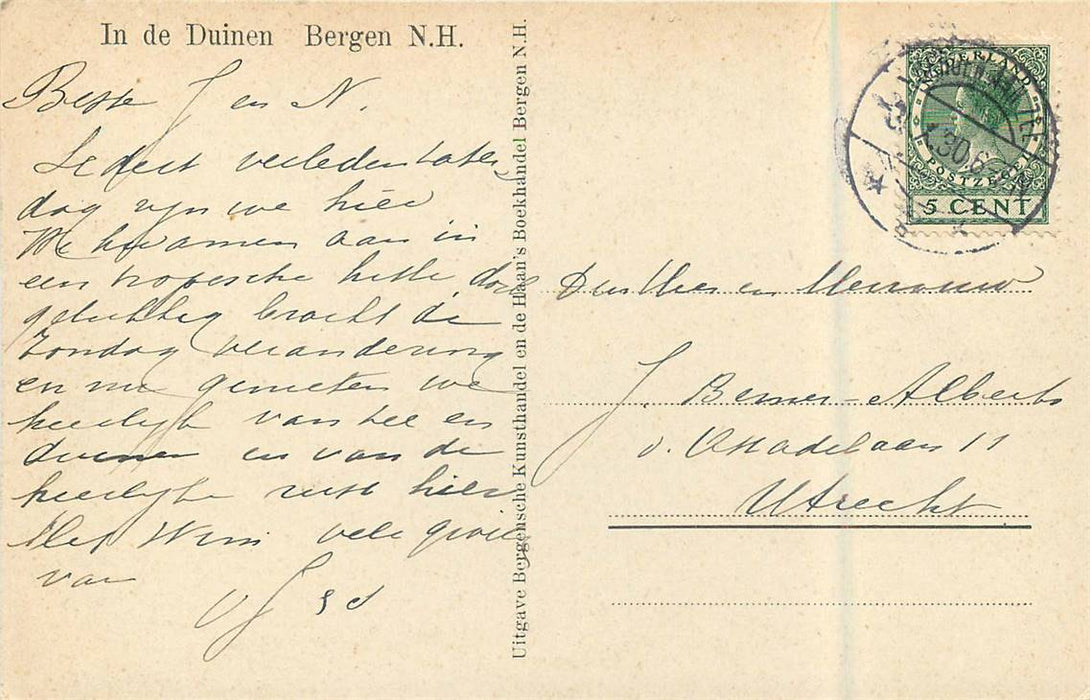 In de Duinen Bergen N.H.
Beste J en N.
Sedert verleden Zater
dag zyn we hier
We kwamen aan in
een tropische hitte doch
gelukkig bracht de
Zondag verandering
en nu genieten we
heerlijk van zee en
duinen en van de
heerlijke rust hier
Met Wim vele groet
van
Uitgave Bergensche Kunsthandel en de Haan's Boekhandel Bergen N.H.
NEDERLAND
POSTZEGEL
5 CENT
30.6
en Mevrouw
J. Berner-Alberts
v. Ostadelaan 11
Utrecht